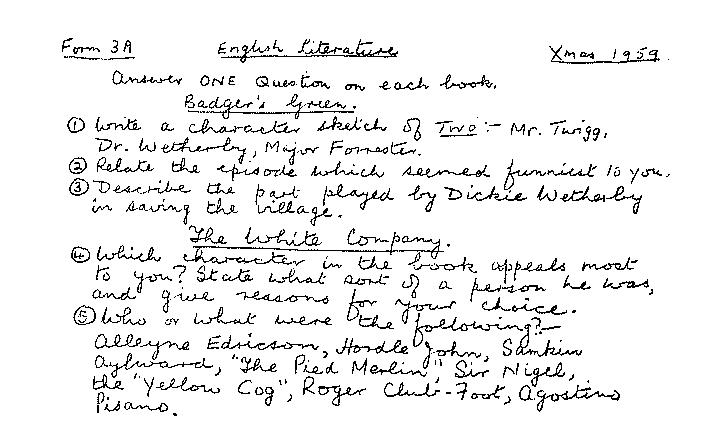 Form 3A English Literature Xmas 1959
Answer ONE Question on each book.
Badger's Green.
① Write a character sketch of Two :- Mr. Twigg,
Dr. Wetherby, Major Forrester.
② Relate the episode which seemed funniest to you.
③ Describe the part played by Dickie Wetherby
in saving the village.
The White Company.
④ Which character in the book appeals most
to you? State what sort of a person he was,
and give reasons for your choice.
⑤ Who or what were the following?-
Alleyne Edricson, Hordle John, Samkin
Aylward, "The Pied Merlin", Sir Nigel,
the "Yellow Cog", Roger Club-Foot, Agostino
Pisano.